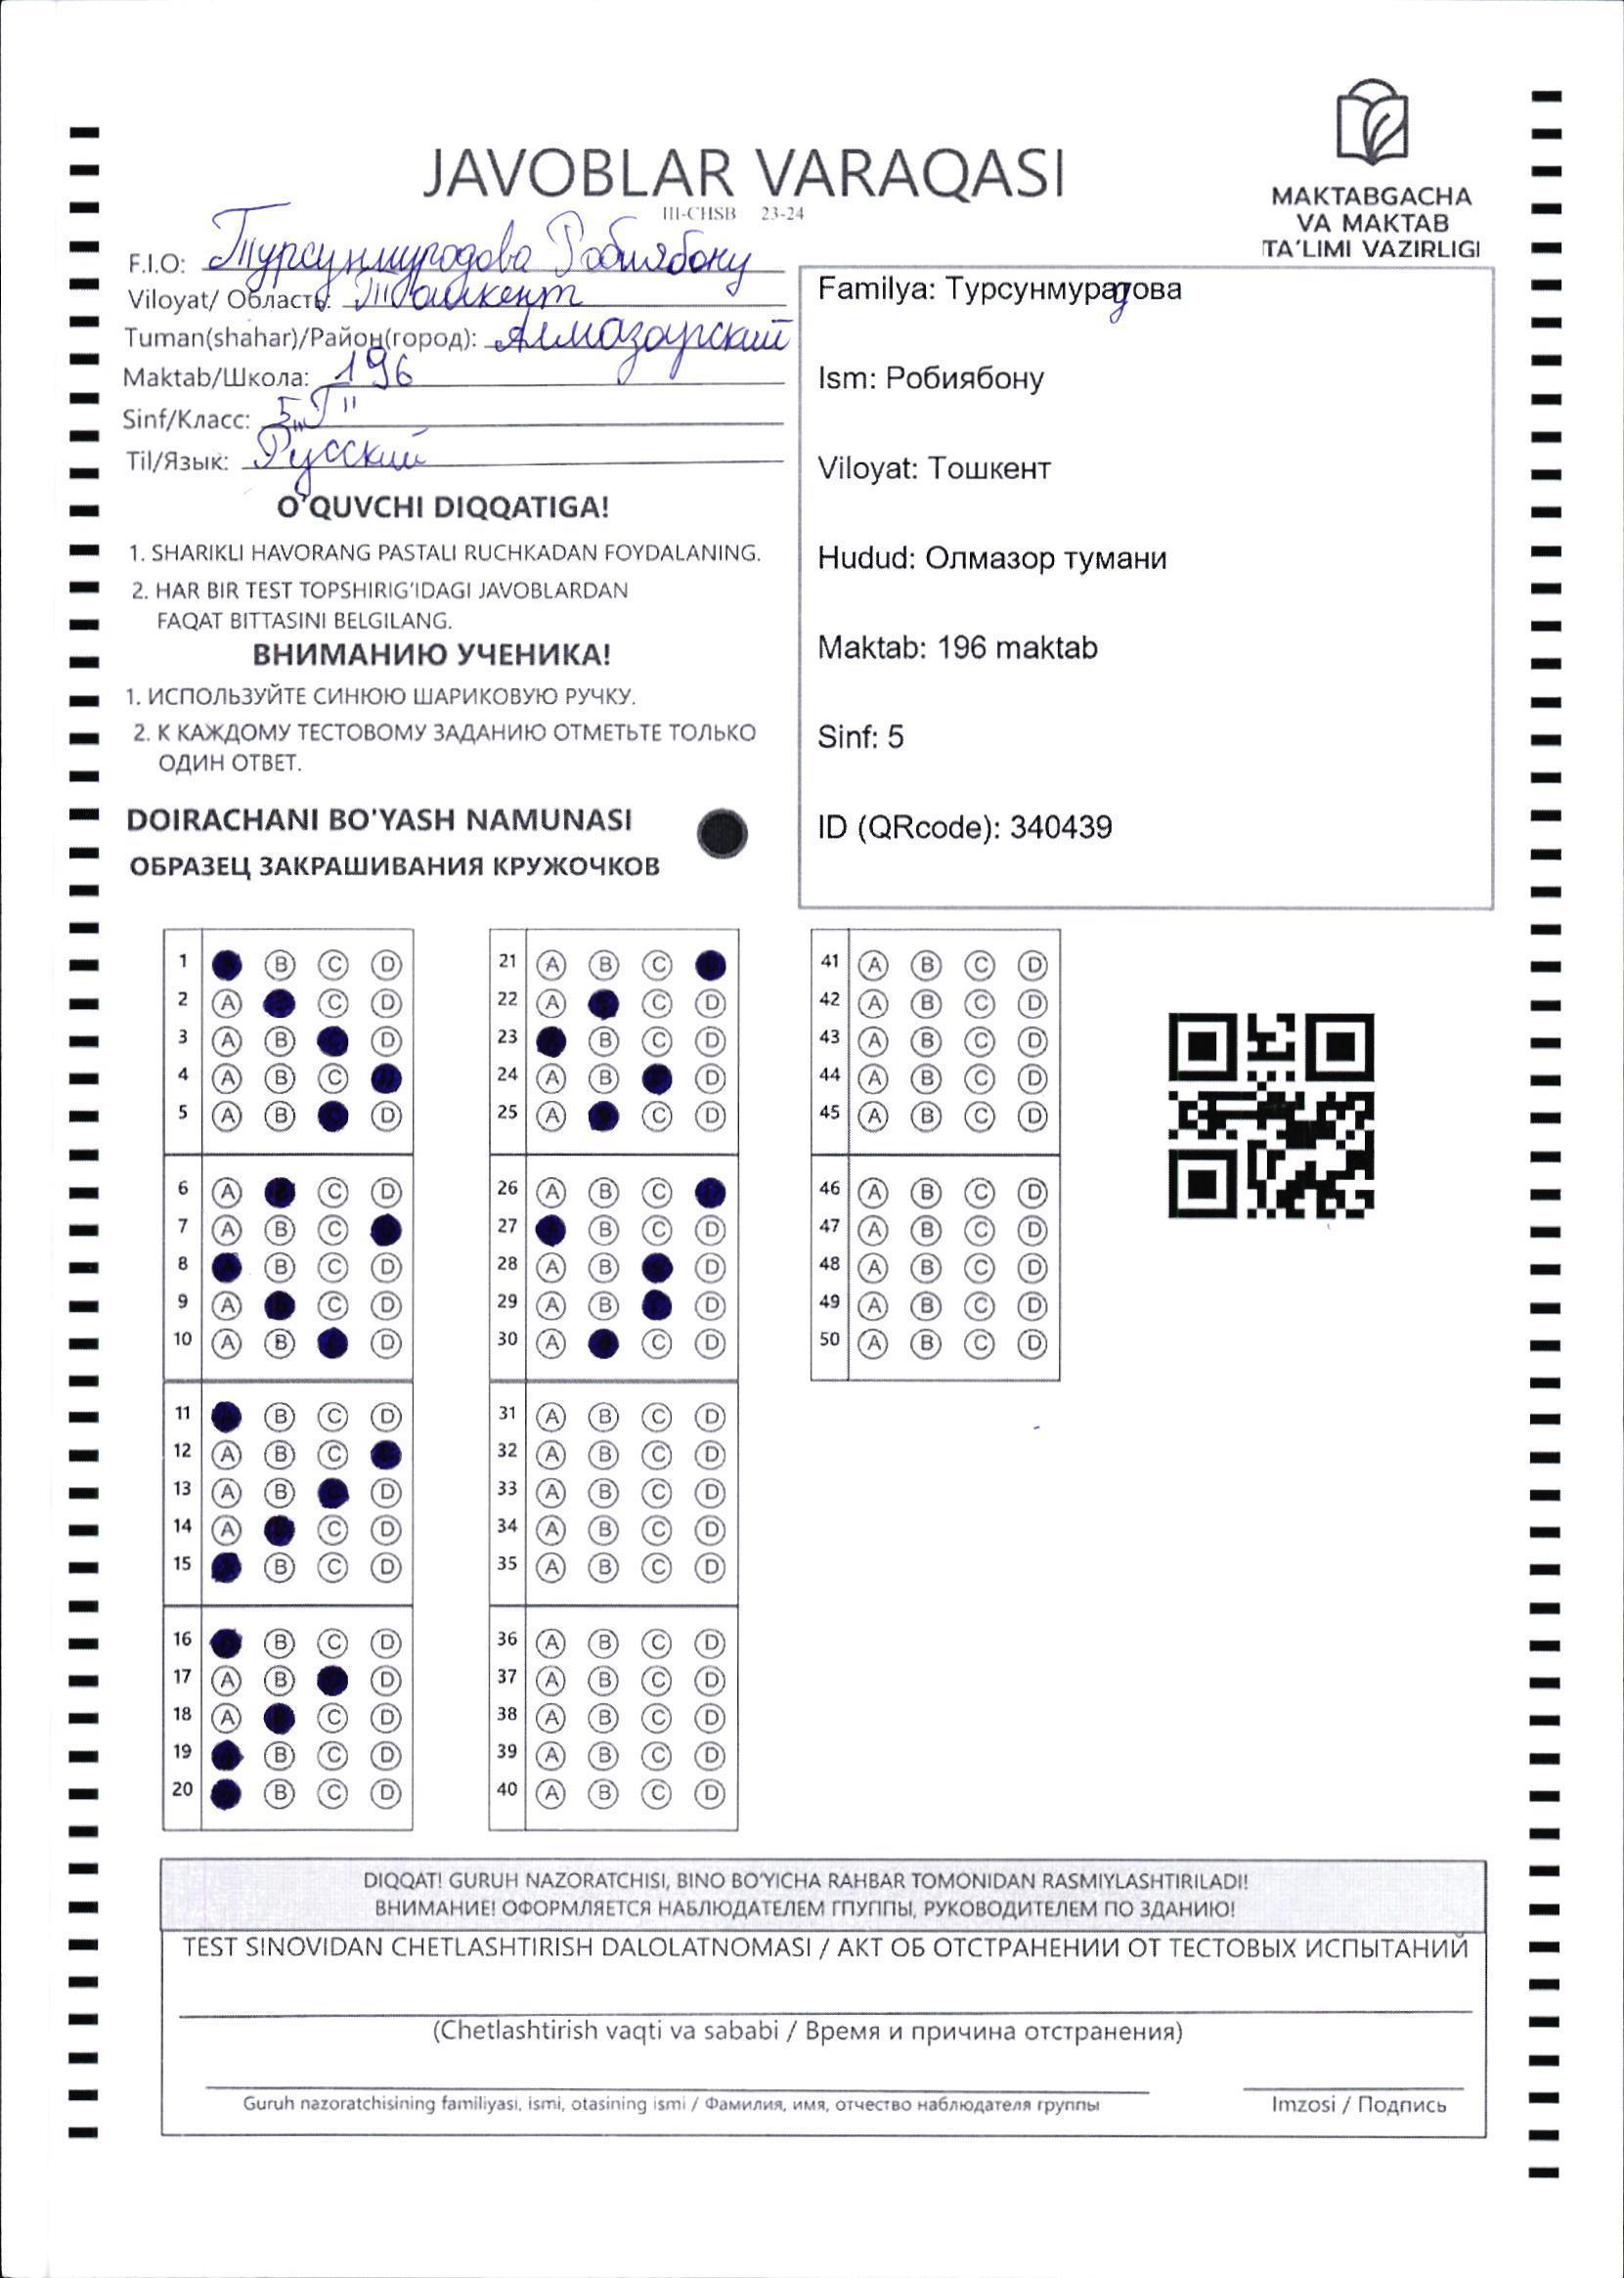 JAVOBLAR VARAQASI
III-CHSB 23-24
MAKTABGACHA
VA MAKTAB
TA'LIMI VAZIRLIGI
F.I.O: Турсунмуродова Робиябону
Viloyat/ Область: Ташкент
Tuman(shahar)/Район(город): Алмазарский
Maktab/Школа: 196
Sinf/Класс: 5 „Г"
Til/Язык: Русский
O'QUVCHI DIQQATIGA!
1. SHARIKLI HAVORANG PASTALI RUCHKADAN FOYDALANING.
2. HAR BIR TEST TOPSHIRIG'IDAGI JAVOBLARDAN
FAQAT BITTASINI BELGILANG.
ВНИМАНИЮ УЧЕНИКА!
1. ИСПОЛЬЗУЙТЕ СИНЮЮ ШАРИКОВУЮ РУЧКУ.
2. К КАЖДОМУ ТЕСТОВОМУ ЗАДАНИЮ ОТМЕТЬТЕ ТОЛЬКО
ОДИН ОТВЕТ.
DOIRACHANI BO'YASH NAMUNASI
ОБРАЗЕЦ ЗАКРАШИВАНИЯ КРУЖОЧКОВ
Familya: Турсунмурадова
Ism: Робиябону
Viloyat: Тошкент
Hudud: Олмазор тумани
Maktab: 196 maktab
Sinf: 5
ID (QRcode): 340439
1 B C D
2 A C D
3 A B D
4 A B C
5 A B D
6 A C D
7 A B C
8 B C D
9 A C D
10 A B D
11 B C D
12 A B C
13 A B D
14 A C D
15 B C D
16 B C D
17 A B D
18 A C D
19 B C D
20 B C D
21 A B C
22 A C D
23 B C D
24 A B D
25 A C D
26 A B C
27 B C D
28 A B D
29 A B D
30 A C D
31 A B C D
32 A B C D
33 A B C D
34 A B C D
35 A B C D
36 A B C D
37 A B C D
38 A B C D
39 A B C D
40 A B C D
41 A B C D
42 A B C D
43 A B C D
44 A B C D
45 A B C D
46 A B C D
47 A B C D
48 A B C D
49 A B C D
50 A B C D
DIQQAT! GURUH NAZORATCHISI, BINO BO'YICHA RAHBAR TOMONIDAN RASMIYLASHTIRILADI!
ВНИМАНИЕ! ОФОРМЛЯЕТСЯ НАБЛЮДАТЕЛЕМ ГПУППЫ, РУКОВОДИТЕЛЕМ ПО ЗДАНИЮ!
TEST SINOVIDAN CHETLASHTIRISH DALOLATNOMASI / АКТ ОБ ОТСТРАНЕНИИ ОТ ТЕСТОВЫХ ИСПЫТАНИЙ
(Chetlashtirish vaqti va sababi / Время и причина отстранения)
Guruh nazoratchisining familiyasi, ismi, otasining ismi / Фамилия, имя, отчество наблюдателя группы
Imzosi / Подпись